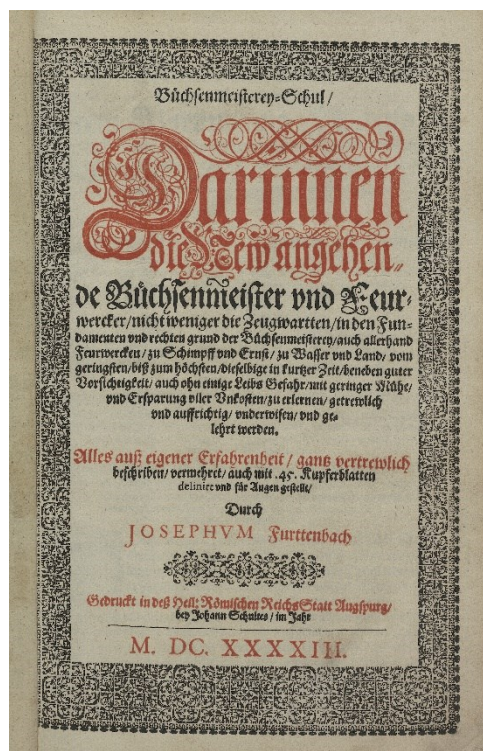 Büchsenmeisterey-Schul /
Darinnen
die New angehen-
de Büchsenmeister vnd Feur-
wercker / nicht weniger die Zeugwarten / in den Fun-
damenten vnd rechten grund der Büchsenmeisterey / auch allerhand
Feurwercken / zu Schimpff vnd Ernst / zu Wasser vnd Land / vom
geringsten / biß zum höchsten / dieselbige in kurtzer Zeit / beneben guter
Vorsichtigkeit / auch ohn einige Leibs Gefahr / mit geringer Mühe /
vnd Ersparung viler Vnkosten / zu erlernen / getrewlich
vnd auffrichtig / vnderwisen / vnd ge-
lehrt werden.
Alles auß eigener Erfahrenheit / gantz vertrewlich
beschriben / vermehret / auch mit .45. Kupferblatten
deliniert vnd für Augen gestellt /
Durch
JOSEPHVM Furttenbach
Gedruckt in deß Heil: Römischen Reichs Statt Augspurg /
bey Johann Schultes / im Jahr
M. DC. XXXXIII.